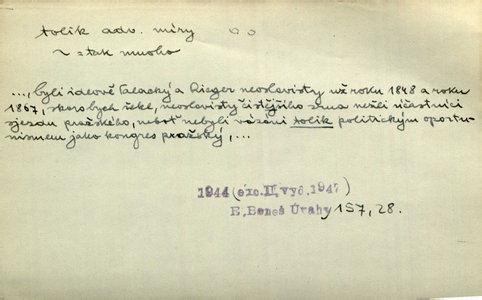 tolik adv. míry
~ = tak mnoho
..., byli ideově Palacký a Rieger neoslavisty už roku 1848 a roku
1867, skoro bych řekl, neoslavisty čistějšího zrna nežli účastníci
sjezdu pražského, neboť nebyli vázáni tolik politickým oportu-
nismem jako kongres pražský, ...
1944 (exc. II, vyd. 1947)
E. Beneš Úvahy 157, 28.